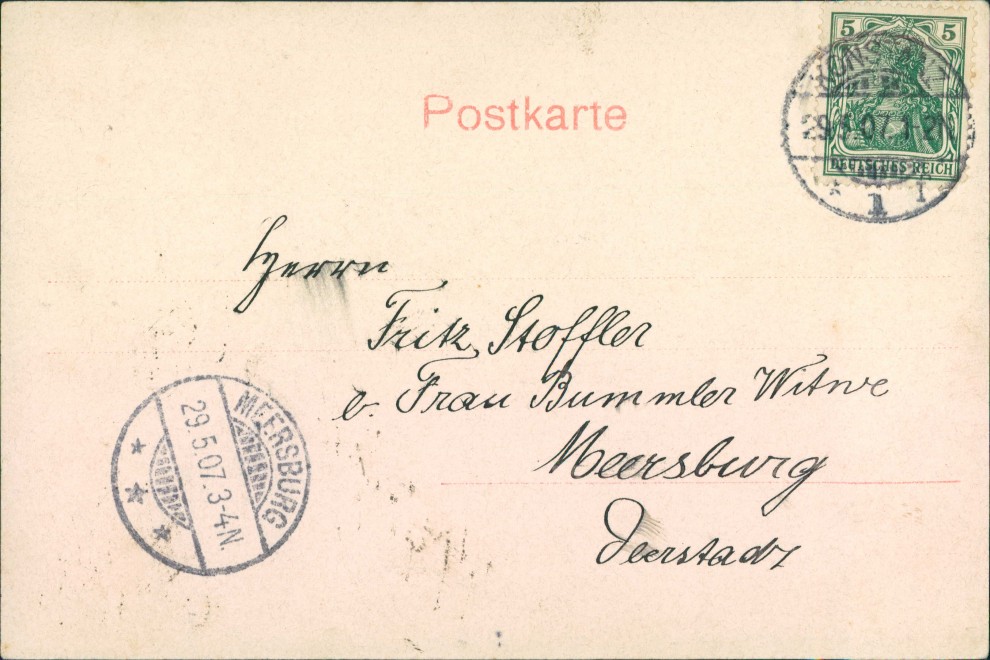 5 5
DEUTSCHES REICH
29.5.07.
1
Postkarte
Herrn
Fritz Stoffler
b. Frau Bummler Witwe
Meersburg
MEERSBURG
29.5.07.3-4N.